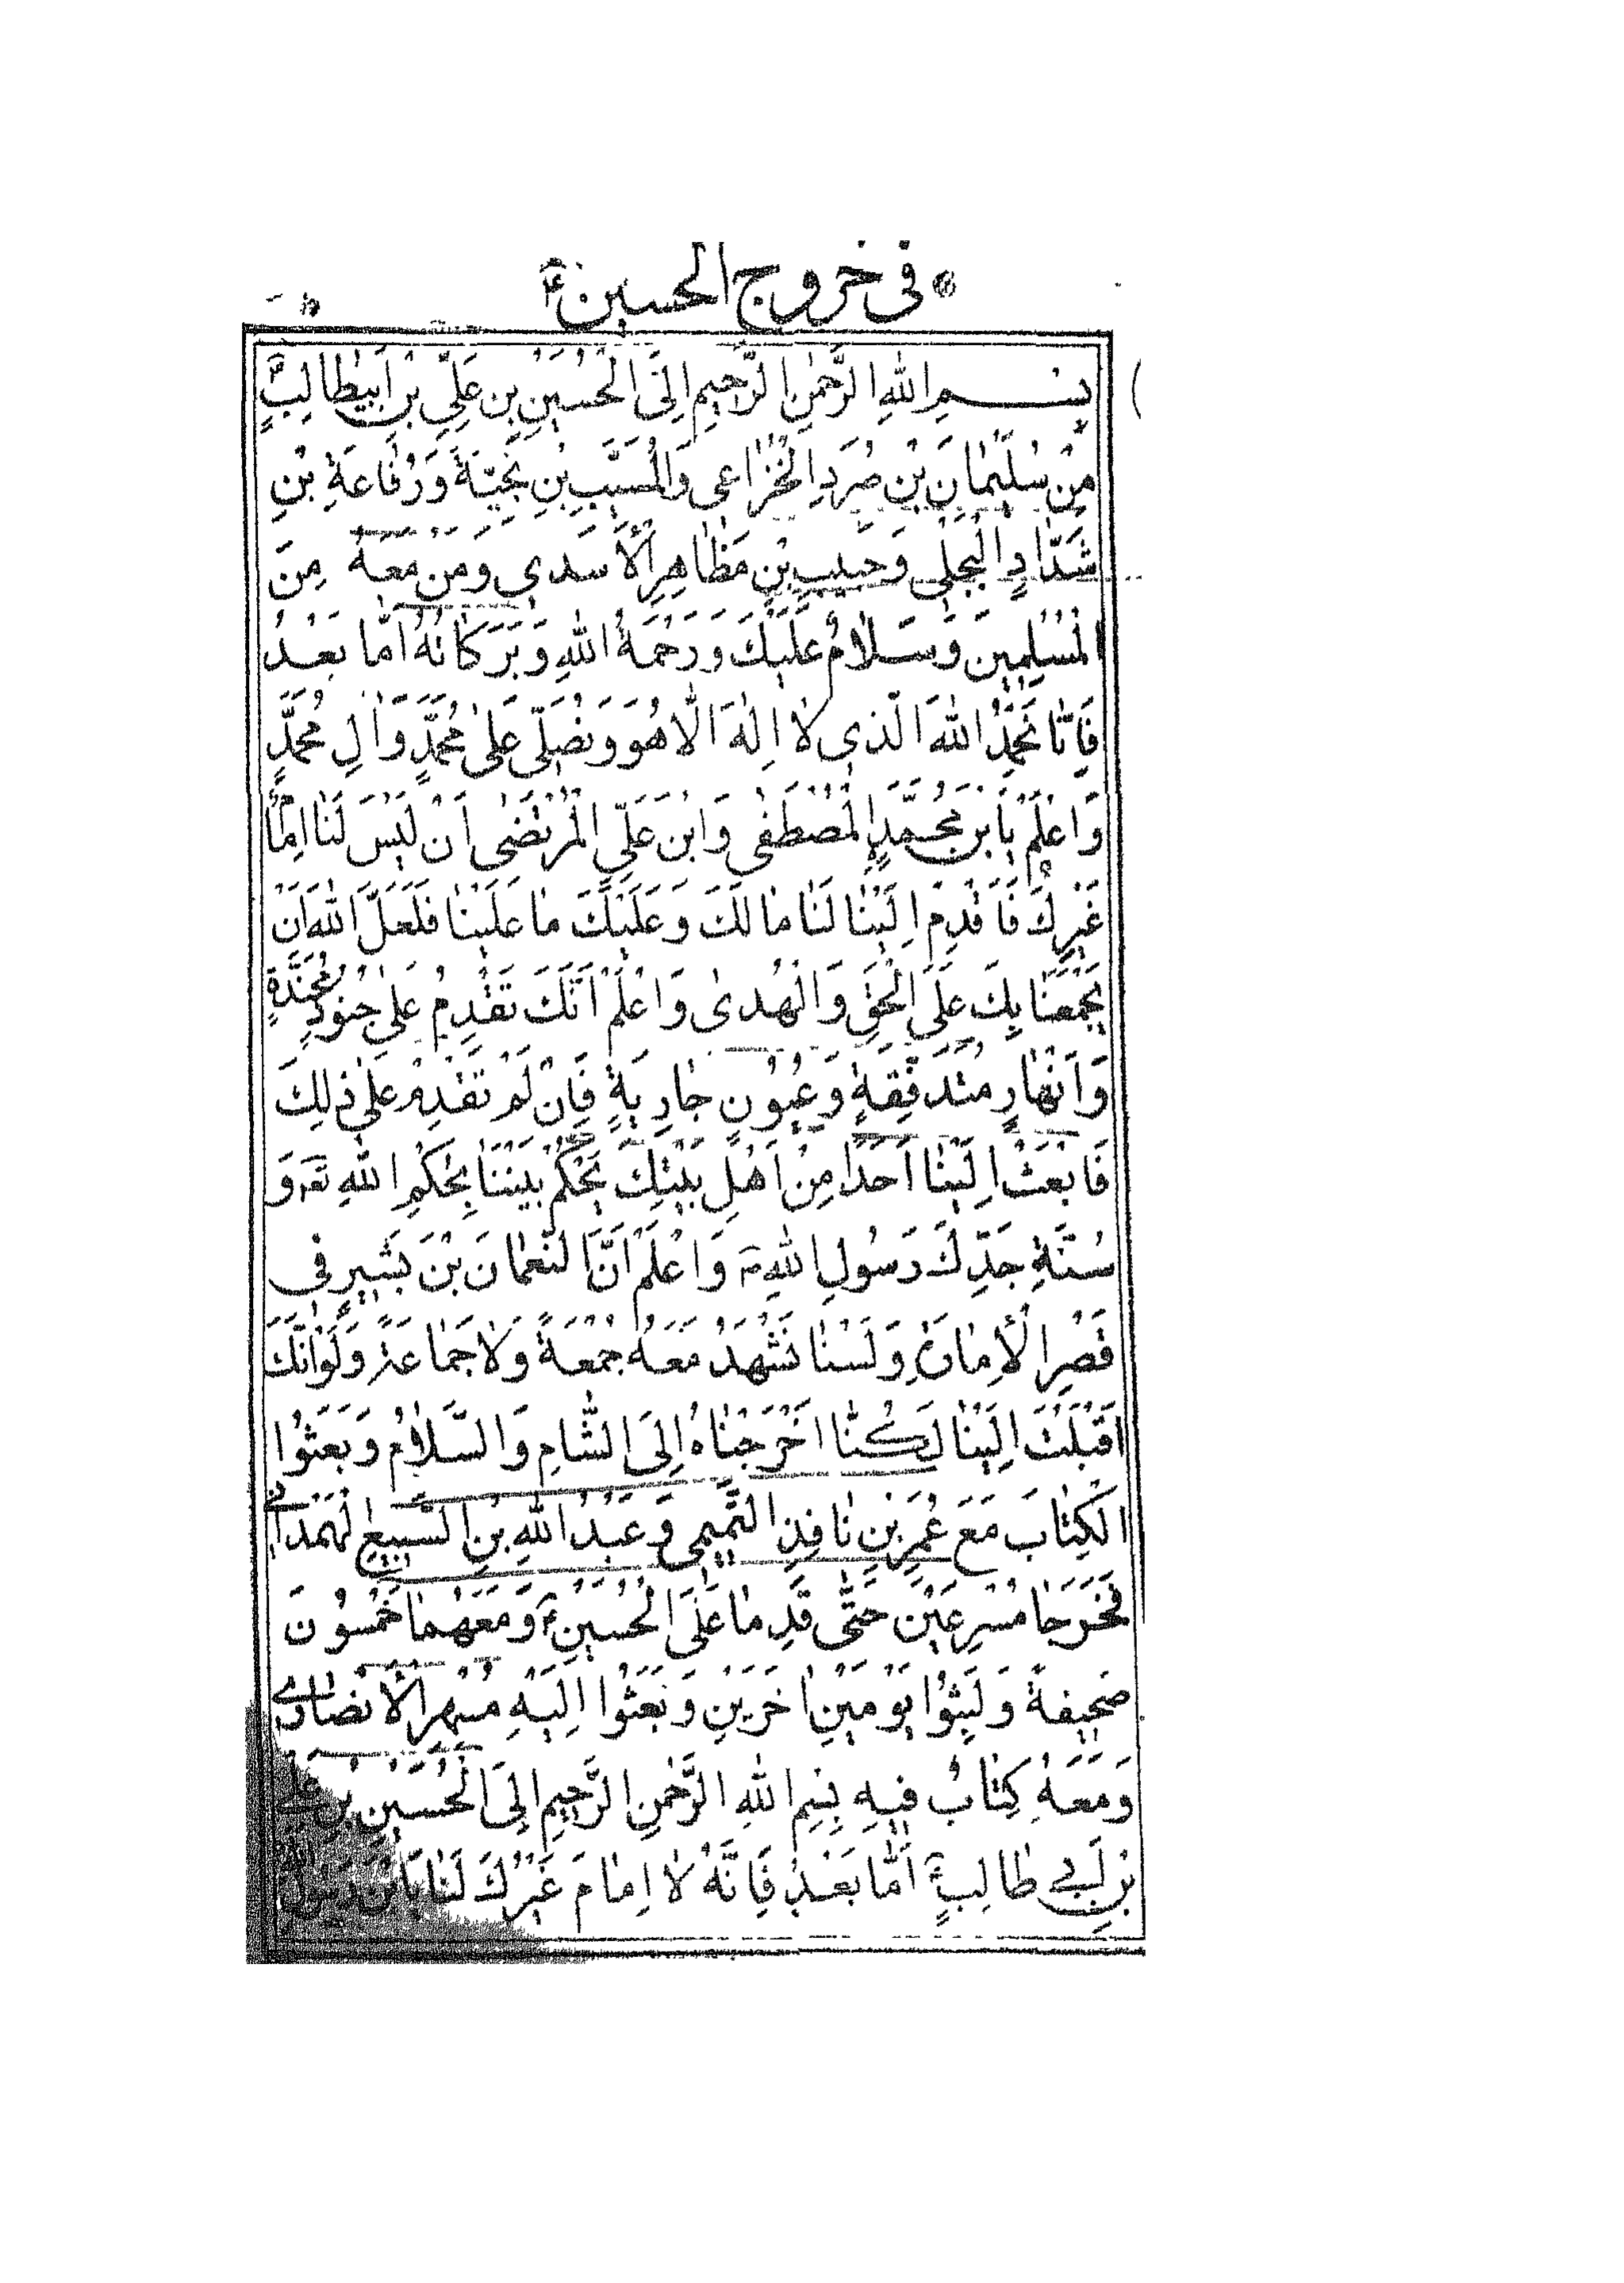 في خروج الحسين ع
بِسْمِ اللهِ الرَّحْمٰنِ الرَّحِيمِ اِلَى الْحُسَيْنِ بْنِ عَلِيِّ بْنِ اَبِيطٰالِبٍ
مِنْ سُلَيْمٰانَ بْنِ صُرَدِ الْخُزٰاعِي وَالْمُسَيَّبِ بْنِ نَجِيَّةَ وَرُفٰاعَةِ بْنِ
شَدّٰادٍ الْبَجَلِي وَحَبِيبِ بْنِ مَظٰاهِرِ الْأَسَدِي وَمَنْ مَعَهُ مِنَ
الْمُسْلِمِينَ وَسَلٰامٌ عَلَيْكَ وَرَحْمَةُ اللهِ وَبَرَكٰاتُهُ اَمّٰا بَعْدُ
فَاِنّٰا نَحْمَدُ اللهَ الَّذِي لٰا اِلٰهَ اِلّٰا هُوَ وَنُصَلِّي عَلىٰ مُحَمَّدٍ وَاٰلِ مُحَمَّدٍ
وَاعْلَمْ يَابْنَ مُحَمَّدٍ الْمُصْطَفٰى وَابْنَ عَلِيِّ الْمُرْتَضٰى اَنْ لَيْسَ لَنٰا اِمٰامٌ
غَيْرُكَ فَاَقْدِمْ اِلَيْنٰا لَنٰا مٰا لَكَ وَعَلَيْكَ مٰا عَلَيْنٰا فَلَعَلَّ اللهَ اَنْ
يَجْمَعَنٰا بِكَ عَلَى الْحَقِّ وَالْهُدىٰ وَاعْلَمْ اَنَّكَ تَقْدِمُ عَلىٰ جُنُودٍ مُجَنَّدَةٍ
وَاَنْهٰارٍ مُتَدَفِّقَةٍ وَعُيُونٍ جٰارِيَةٍ فَاِنْ لَمْ تَقْدِمْ عَلىٰ ذٰلِكَ
فَابْعَثْ اِلَيْنٰا اَحَدًا مِنْ اَهْلِ بَيْتِكَ يَحْكُمُ بَيْنَنٰا بِحُكْمِ اللهِ تَعٰ وَ
سُنَّةِ جَدِّكَ رَسُولِ اللهِ ص وَاعْلَمْ اَنَّ النُّعْمٰانَ بْنَ بَشِيرٍ فِي
قَصْرِ الْأِمٰارَةِ وَلَسْنٰا نَشْهَدُ مَعَهُ جُمْعَةً وَلٰا جَمٰاعَةً وَلَوْ اَنَّكَ
اَقْبَلْتَ اِلَيْنٰا لَكُنّٰا اَخْرَجْنٰاهُ اِلَى الشّٰامِ وَالسَّلٰامُ وَبَعَثُوا
الْكِتٰابَ مَعَ عُمَرِ بْنِ نٰافِذِ التَّمِيمِي وَعَبْدُ اللهِ بْنِ السَّبِيعِ الْهَمْدٰانِي
فَخَرَجٰا مُسْرِعَيْنِ حَتّٰى قَدِمٰا عَلَى الْحُسَيْنِ ع وَمَعَهُمٰا خَمْسُونَ
صَحِيفَةً وَلَبِثُوا يَوْمَيْنِ اٰخَرَيْنِ وَبَعَثُوا اِلَيْهِ مُسْهِرِ الْأَنْصٰارِي
وَمَعَهُ كِتٰابٌ فِيهِ بِسْمِ اللهِ الرَّحْمٰنِ الرَّحِيمِ اِلَى الْحُسَيْنِ بْنِ عَلِي
بْنِ اَبِي طٰالِبٍ ع اَمّٰا بَعْدُ فَاِنَّهُ لٰا اِمٰامَ غَيْرُكَ لَنٰا يَابْنَ رَسُولِ اللهِ